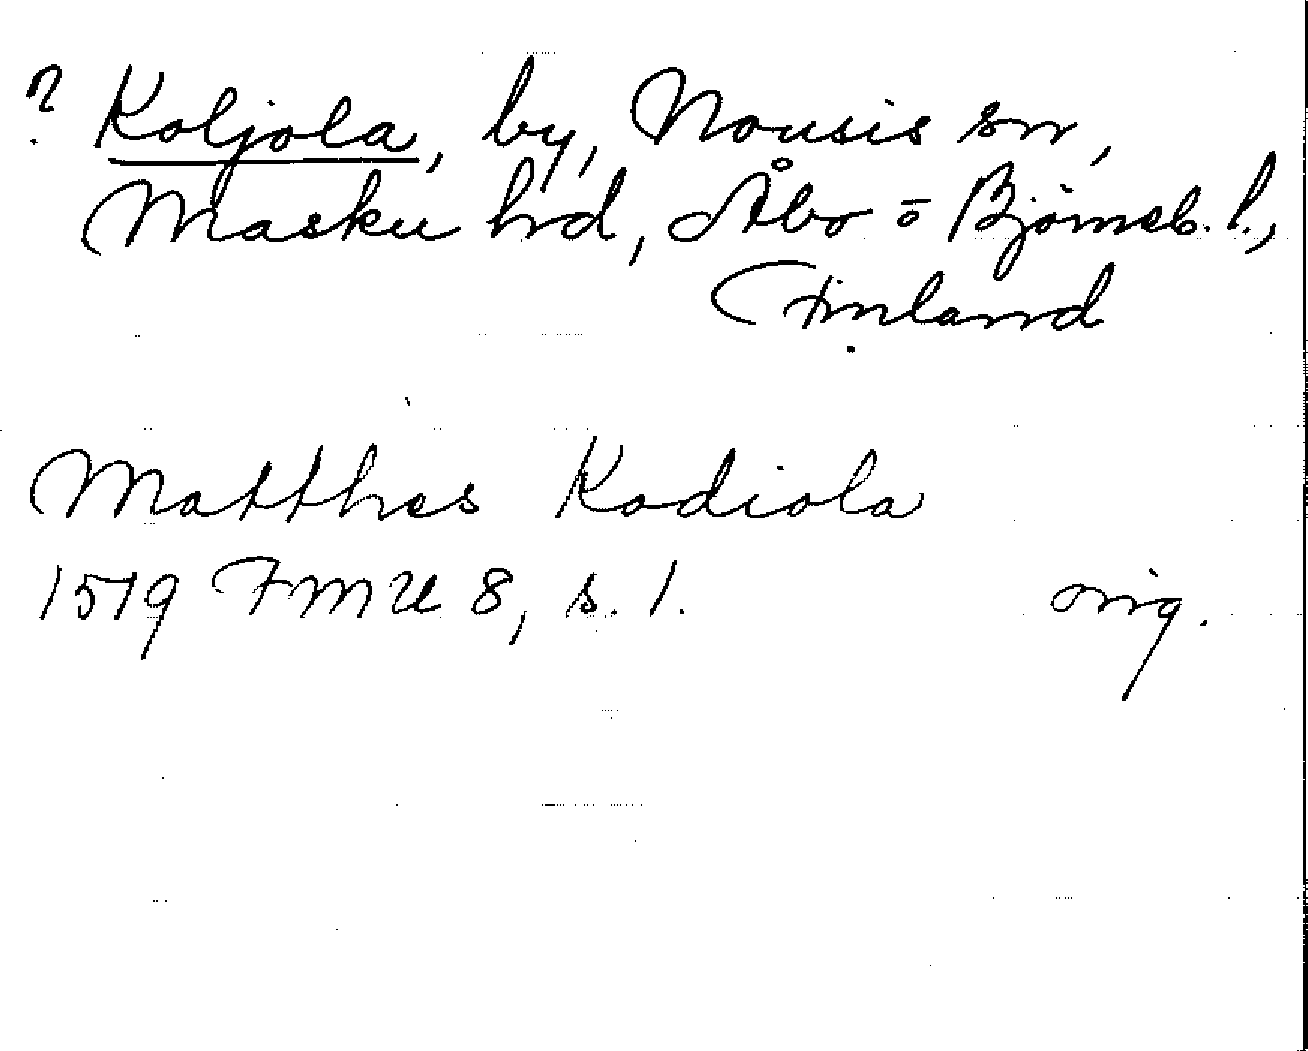 ? Koljola, by, Nousis sn,
Masku hd, Åbo o Björneb. l.,
Finland
Matthes Kodiola
1519 FMU 8, s. 1. orig.